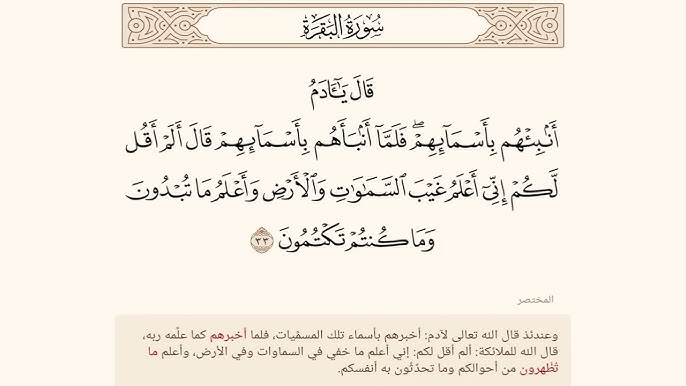 سُورَةُ البَقَرَةِ
قَالَ يَـٰٓـَٔادَمُ
أَنۢبِئۡهُم بِأَسۡمَآئِهِمۡۖ فَلَمَّآ أَنۢبَأَهُم بِأَسۡمَآئِهِمۡ قَالَ أَلَمۡ أَقُل
لَّكُمۡ إِنِّيٓ أَعۡلَمُ غَيۡبَ ٱلسَّمَٰوَٰتِ وَٱلۡأَرۡضِ وَأَعۡلَمُ مَا تُبۡدُونَ
وَمَا كُنتُمۡ تَكۡتُمُونَ ٣٣
المختصر
وعندئذ قال الله تعالى لآدم: أخبرهم بأسماء تلك المسمَّيات، فلما أخبرهم كما علَّمه ربه،
قال الله للملائكة: ألم أقل لكم: إني أعلم ما خفي في السماوات وفي الأرض، وأعلم ما
تُظْهرون من أحوالكم وما تحدّثون به أنفسكم.